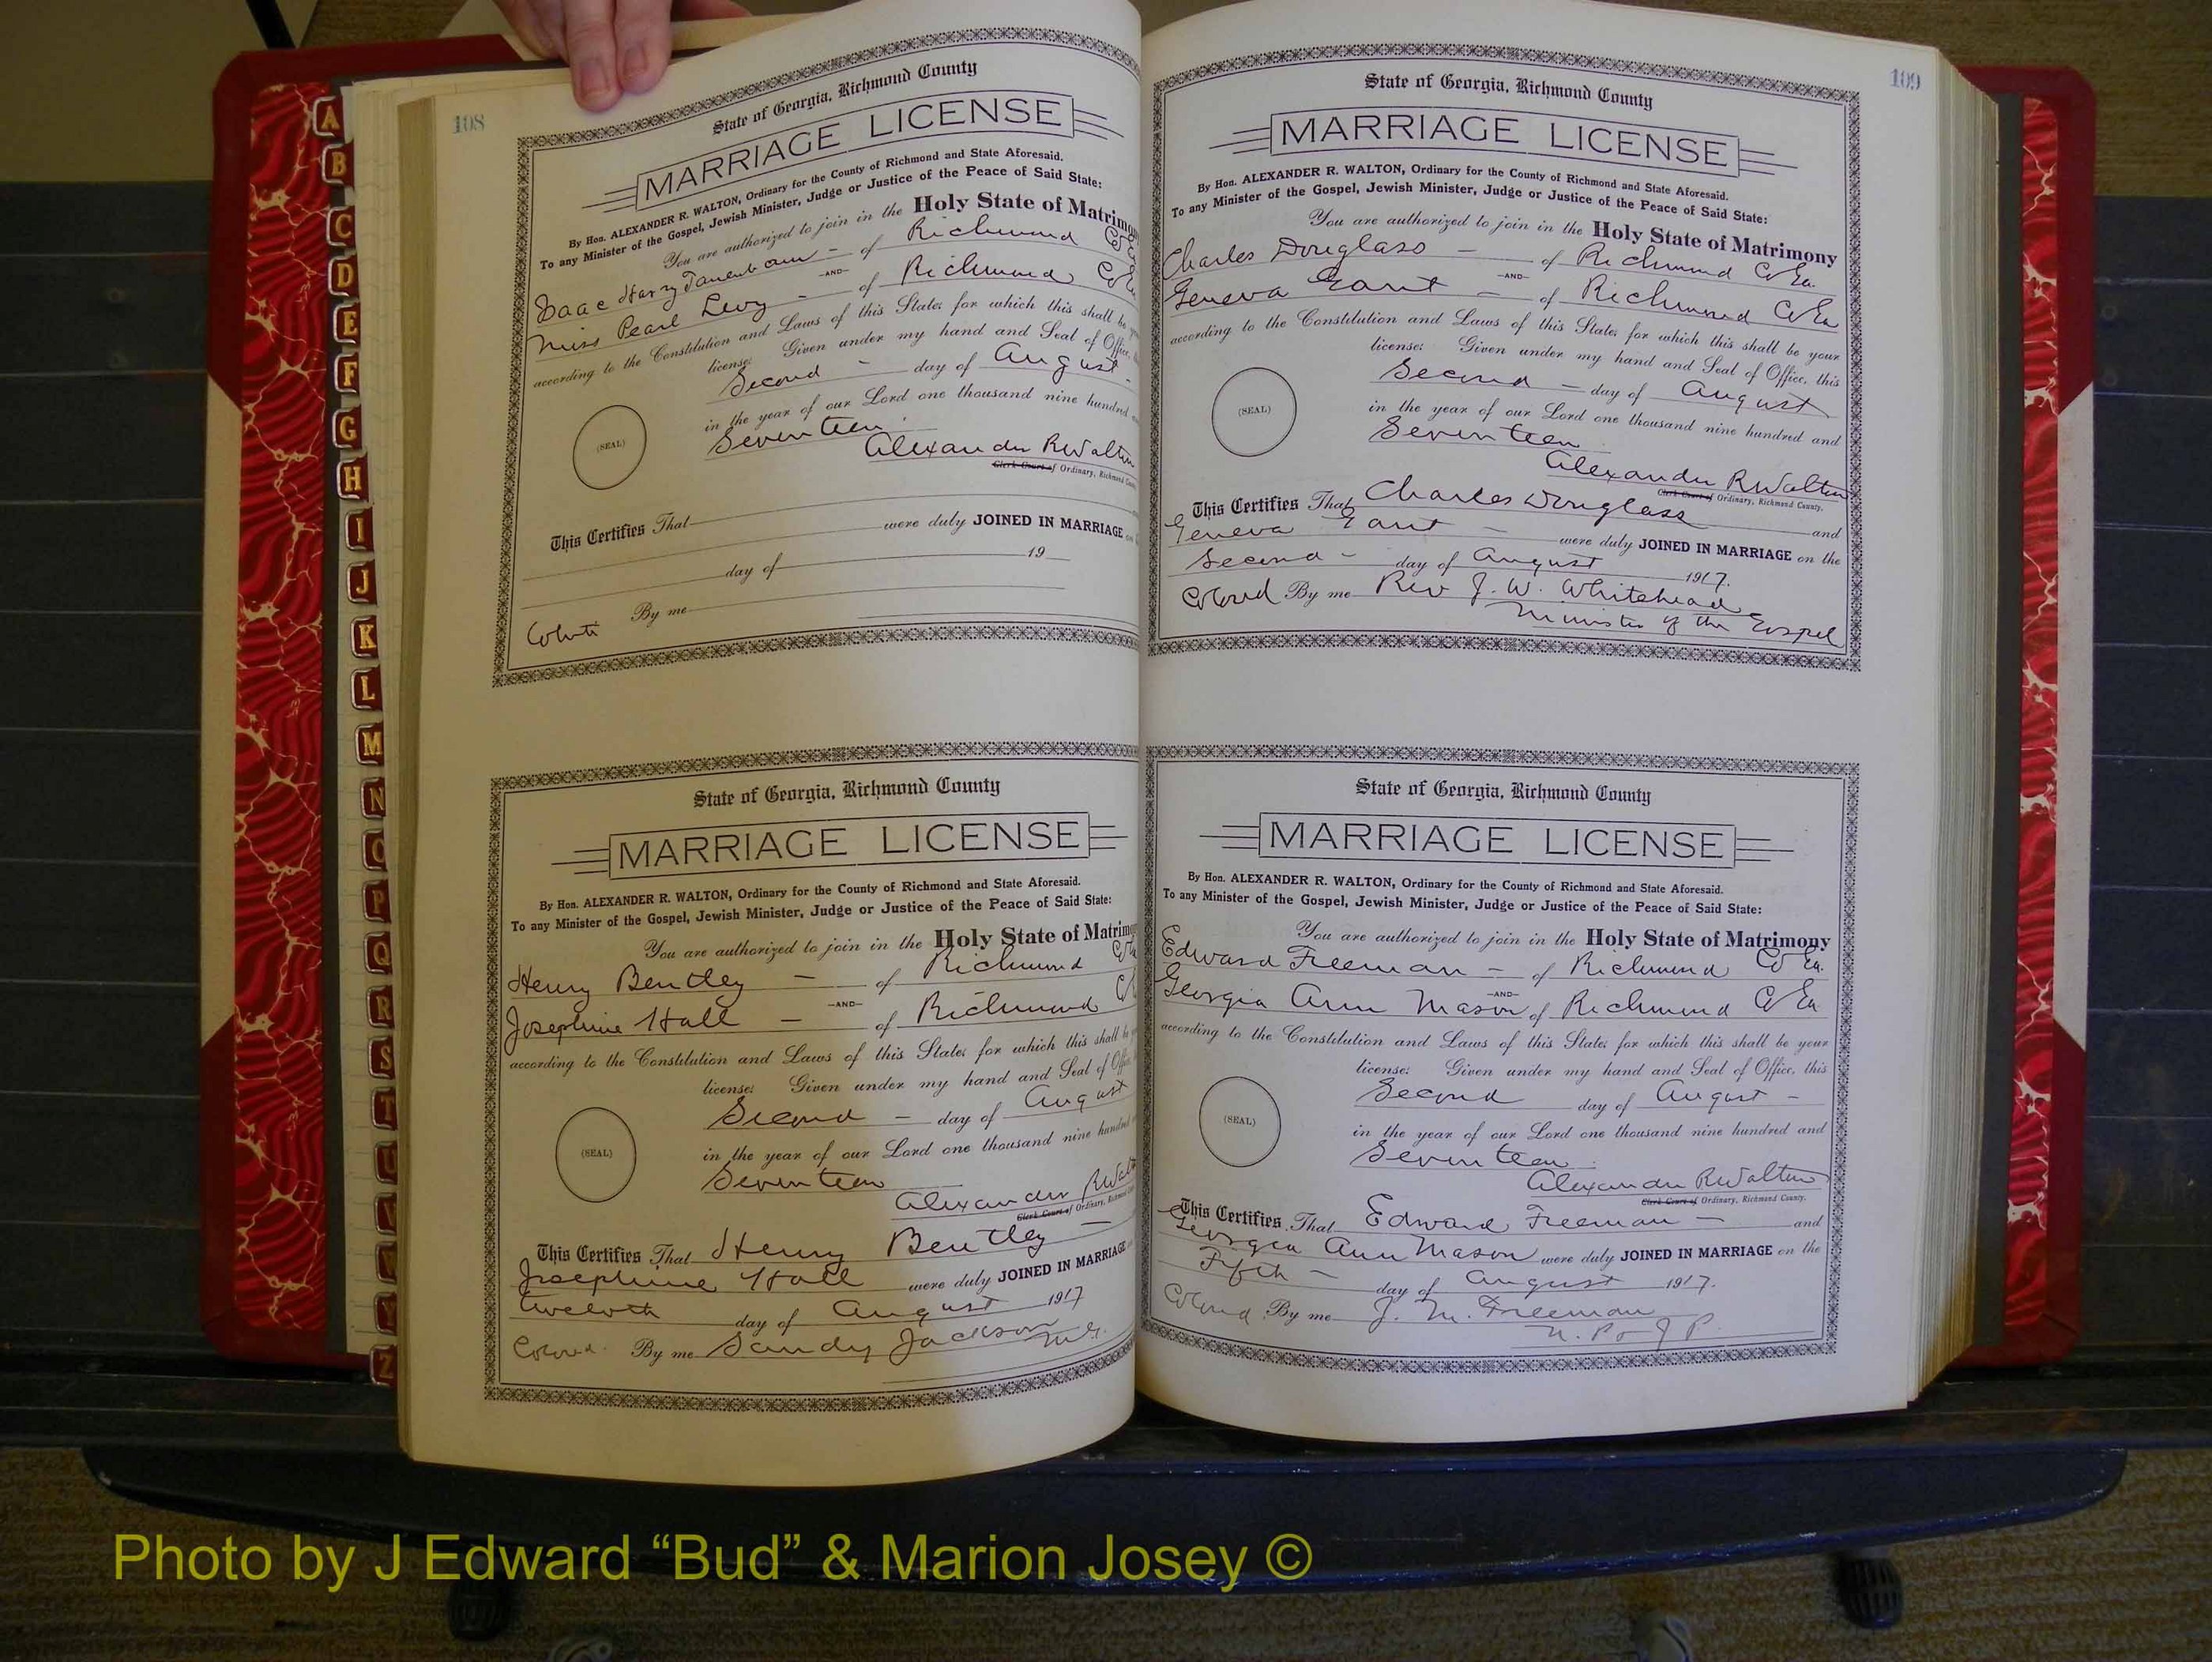 108
State of Georgia, Richmond County
MARRIAGE LICENSE
By Hon. ALEXANDER R. WALTON, Ordinary for the County of Richmond and State Aforesaid.
To any Minister of the Gospel, Jewish Minister, Judge or Justice of the Peace of Said State:
You are authorized to join in the Holy State of Matrimony
Isaac Harry Tanenbaum - of Richmond Co Ga
-AND-
Miss Pearl Levy - of Richmond Co Ga
according to the Constitution and Laws of this State, for which this shall be
license: Given under my hand and Seal of Office,
Second - day of August -
in the year of our Lord one thousand nine hundred
Seventeen
(SEAL)
Alexander R Walton
Clerk Court of Ordinary, Richmond County
This Certifies That
were duly JOINED IN MARRIAGE on
day of 19
By me
White
State of Georgia, Richmond County
MARRIAGE LICENSE
By Hon. ALEXANDER R. WALTON, Ordinary for the County of Richmond and State Aforesaid.
To any Minister of the Gospel, Jewish Minister, Judge or Justice of the Peace of Said State:
You are authorized to join in the Holy State of Matrimony
Henry Bentley - of Richmond Co Ga
-AND-
Josephine Hall - of Richmond Co
according to the Constitution and Laws of this State, for which this shall be
license: Given under my hand and Seal of Office
Second - day of August
in the year of our Lord one thousand nine hundred
Seventeen
(SEAL)
Alexander R Walton
Clerk Court of Ordinary, Richmond
This Certifies That Henry Bentley -
Josephine Hall were duly JOINED IN MARRIAGE
twelvth day of August 1917
Colored. By me Sandy Jackson M.G.
109
State of Georgia, Richmond County
MARRIAGE LICENSE
By Hon. ALEXANDER R. WALTON, Ordinary for the County of Richmond and State Aforesaid.
To any Minister of the Gospel, Jewish Minister, Judge or Justice of the Peace of Said State:
You are authorized to join in the Holy State of Matrimony
Charles Douglass - of Richmond Co Ga.
-AND-
Geneva Gant - of Richmond Co Ga
according to the Constitution and Laws of this State, for which this shall be your
license: Given under my hand and Seal of Office, this
Second - day of August
in the year of our Lord one thousand nine hundred and
Seventeen
(SEAL)
Alexander R Walton
Clerk Court of Ordinary, Richmond County.
This Certifies That Charles Douglass and
Geneva Gant - were duly JOINED IN MARRIAGE on the
Second - day of August 1917.
Colored By me Rev J. W. Whitehead
Minister of the Gospel
State of Georgia, Richmond County
MARRIAGE LICENSE
By Hon. ALEXANDER R. WALTON, Ordinary for the County of Richmond and State Aforesaid.
To any Minister of the Gospel, Jewish Minister, Judge or Justice of the Peace of Said State:
You are authorized to join in the Holy State of Matrimony
Edward Freeman - of Richmond Co Ga.
-AND-
Georgia Ann Mason of Richmond Co Ga
according to the Constitution and Laws of this State, for which this shall be your
license: Given under my hand and Seal of Office, this
Second day of August -
in the year of our Lord one thousand nine hundred and
Seventeen
(SEAL)
Alexander R Walton
Clerk Court of Ordinary, Richmond County.
This Certifies That Edward Freeman - and
Georgia Ann Mason were duly JOINED IN MARRIAGE on the
Fifth - day of August 1917.
Colored By me J. M. Freeman
N. P. o J P.
A
B
C
D
E
F
G
H
I
J
K
L
M
N
O
P
Q
R
S
T
U
V
W
Y
Z
Photo by J Edward “Bud” & Marion Josey ©